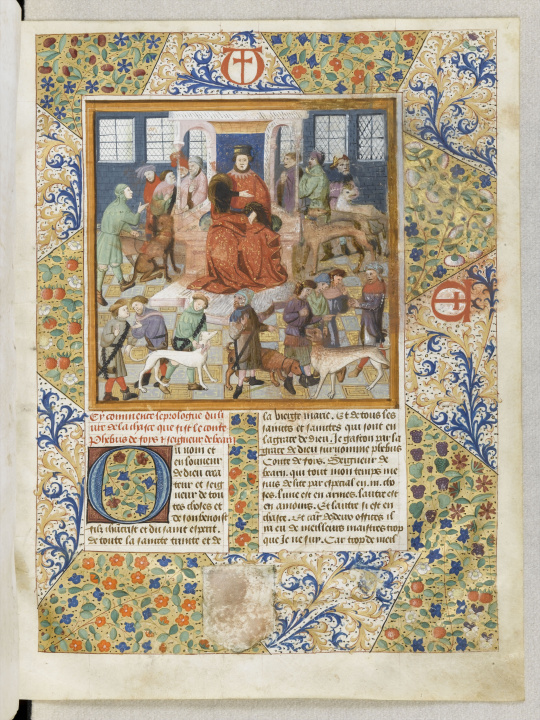 Cy commence le prologue du li
ure de la chasse que fist le conte
Phebus de foys & seigneur de bearn
Ou nom et
en lonneur
de dieu crea
teur et seig
neur de tou
tes choses et
de son benoist
filz ihucrist et du saint esperit.
de toute la saincte trinite et de
la vierge marie. Et de tous les
saints et saintes qui sont en
la grace de dieu. Je gaston par la
grace de dieu surnomme phebus
Conte de foys. Seigneur de
bearn. qui tout mon temps me
suis delite par especial en .iii. cho
ses. Lune est en armes. Lautre est
en amours. Et lautre si est en
chasse. Et car de deux offices il
en a de meilleurs maistres trop
que Je ne suy. Car trop de meil